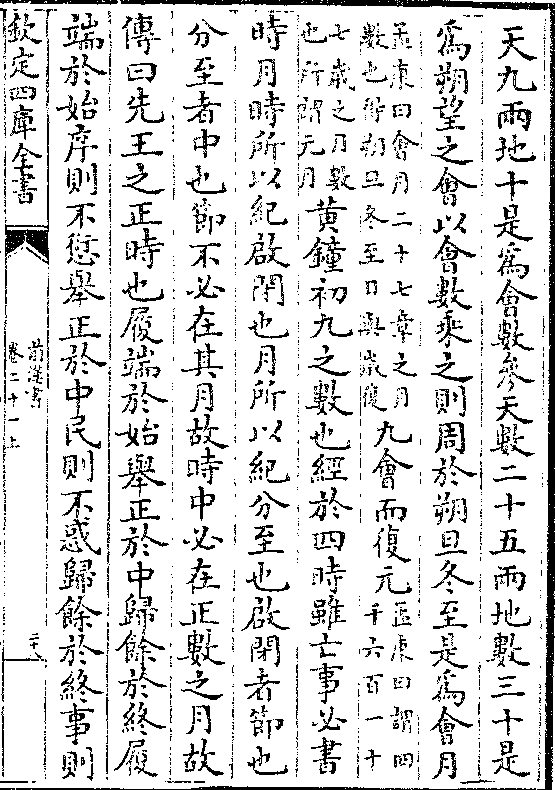 天九兩地十是爲會數參天數二十五兩地數三十是
爲朔望之會以會數乘之則周於朔旦冬至是爲會月
孟康曰會月二十七章之月
數也得朔旦冬至日與歲復
九會而復元
孟康曰謂四
千六百一十
七歲之月數
也所謂元月
黃鐘初九之數也經於四時雖亡事必書
時月時所以紀啟閉也月所以紀分至也啟閉者節也
分至者中也節不必在其月故時中必在正數之月故
傳曰先王之正時也履端於始舉正於中歸餘於終履
端於始序則不愆舉正於中民則不惑歸餘於終事則
欽定四庫全書
前漢書
卷二十一上
二十八